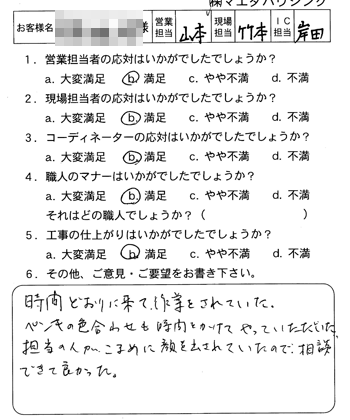 ㈱マエダハウジング
お客様名 様 営業担当 山本 現場担当 竹本 IC担当 岸田
1．営業担当者の応対はいかがでしたでしょうか？
a. 大変満足 b. 満足 c. やや不満 d. 不満
2．現場担当者の応対はいかがでしたでしょうか？
a. 大変満足 b. 満足 c. やや不満 d. 不満
3．コーディネーターの応対はいかがでしたでしょうか？
a. 大変満足 b. 満足 c. やや不満 d. 不満
4．職人のマナーはいかがでしたでしょうか？
a. 大変満足 b. 満足 c. やや不満 d. 不満
それはどの職人でしょうか？（ ）
5．工事の仕上がりはいかがでしたでしょうか？
a. 大変満足 b. 満足 c. やや不満 d. 不満
6．その他、ご意見・ご要望をお書き下さい。
時間どおりに来て、作業をされていた。
ペンキの色合わせも時間をかけてやっていただいた。
担当の人がこまめに顔を出されていたので、相談
できて良かった。